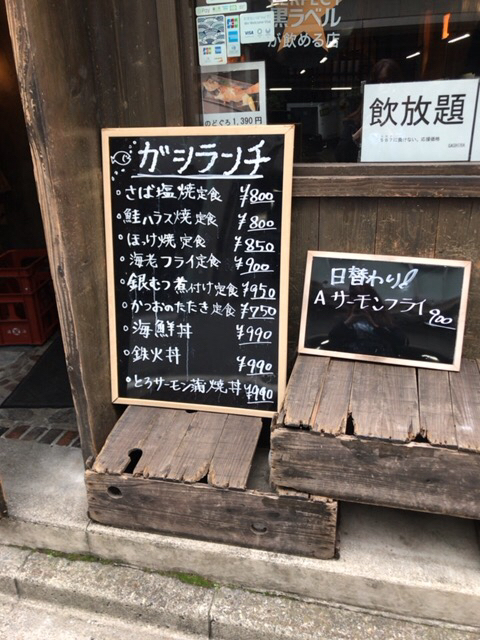 PERFECT
黒ラベル
が飲める店
JCB
VISA
のどぐろ 1,390円
飲放題
ガシランチ
さば塩焼定食 ¥800
鮭ハラス焼定食 ¥800
ほっけ焼定食 ¥850
海老フライ定食 ¥900
銀むつ煮付け定食 ¥950
かつおのたたき定食 ¥750
海鮮丼 ¥990
鉄火丼 ¥990
とろサーモン蒲焼丼 ¥990
日替わり
A サーモンフライ 900